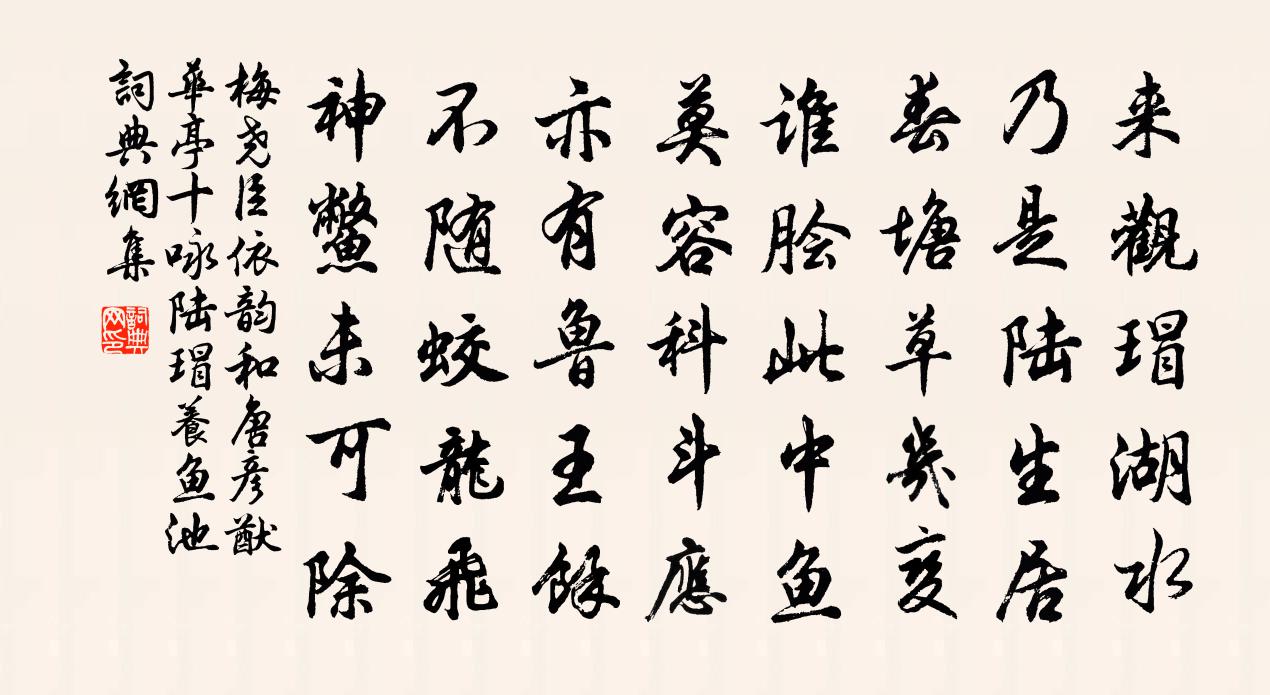 来觀瑁湖水
乃是陆生居
春塘草幾變
谁脍此中鱼
莫容科斗應
亦有鲁王餘
不随蛟龍飛
神鱉未可除
梅尧臣依韵和唐彦猷
華亭十咏陆瑁養鱼池
詞典網集
詞典网印